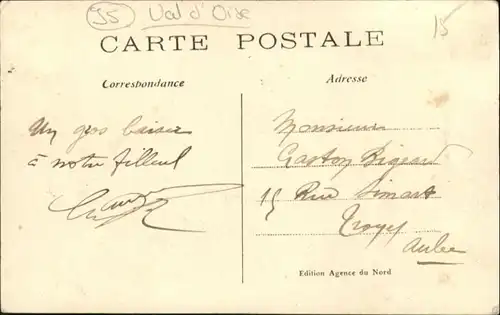 95 Val d'Oise
15
CARTE POSTALE
Correspondance
Adresse
Un gros baiser
à notre filleul
Monsieur
Gaston
15 Rue Simart
Troyes
Aube
Edition Agence du Nord